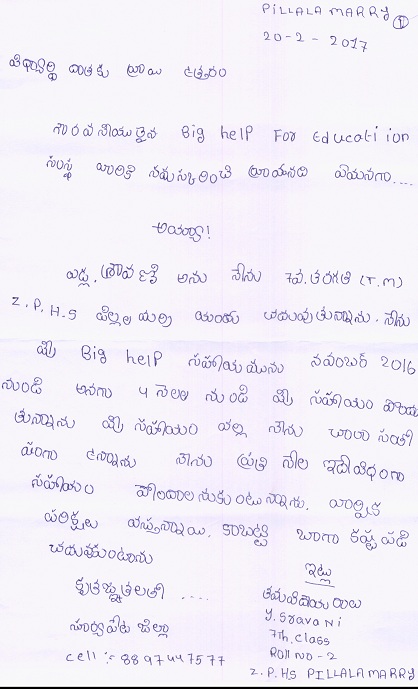 PILLALAMARRY ①
20-2-2017
విద్యార్థి దాతకు వ్రాయు ఉత్తరం
గౌరవనీయులైన Big help For Education
సంస్థ వారికి నమస్కరించి వ్రాయునది ఏమనగా....
అయ్యా!
వడ్ల. శ్రావణి అను నేను 7వ. తరగతి (T.M)
Z.P.H.S పిల్లలమర్రి యందు చదువుతున్నాను. నేను
మీ Big help సహాయమును నవంబర్ 2016
నుండి అనగా 4 నెలల నుండి మీ సహాయం పొందు
తున్నాను మీ సహాయం వల్ల నేను చాలా సంతో
షంగా ఉన్నాను నేను ప్రతి నెల ఇదేవిధంగా
సహాయం పొందాలనుకుంటున్నాను. వార్షిక
పరిక్షలు వస్తున్నాయి. కాబట్టి బాగా కష్టపడి
చదువుకుంటాను
కృతజ్ఞతలతో ....
ఇట్లు
తమ విదేయురాలు
Y. Sravani
7th. class
Roll NO - 2
Z.P.HS PILLALAMARRY
సూర్యపేట జిల్లా
cell :- 8897447577